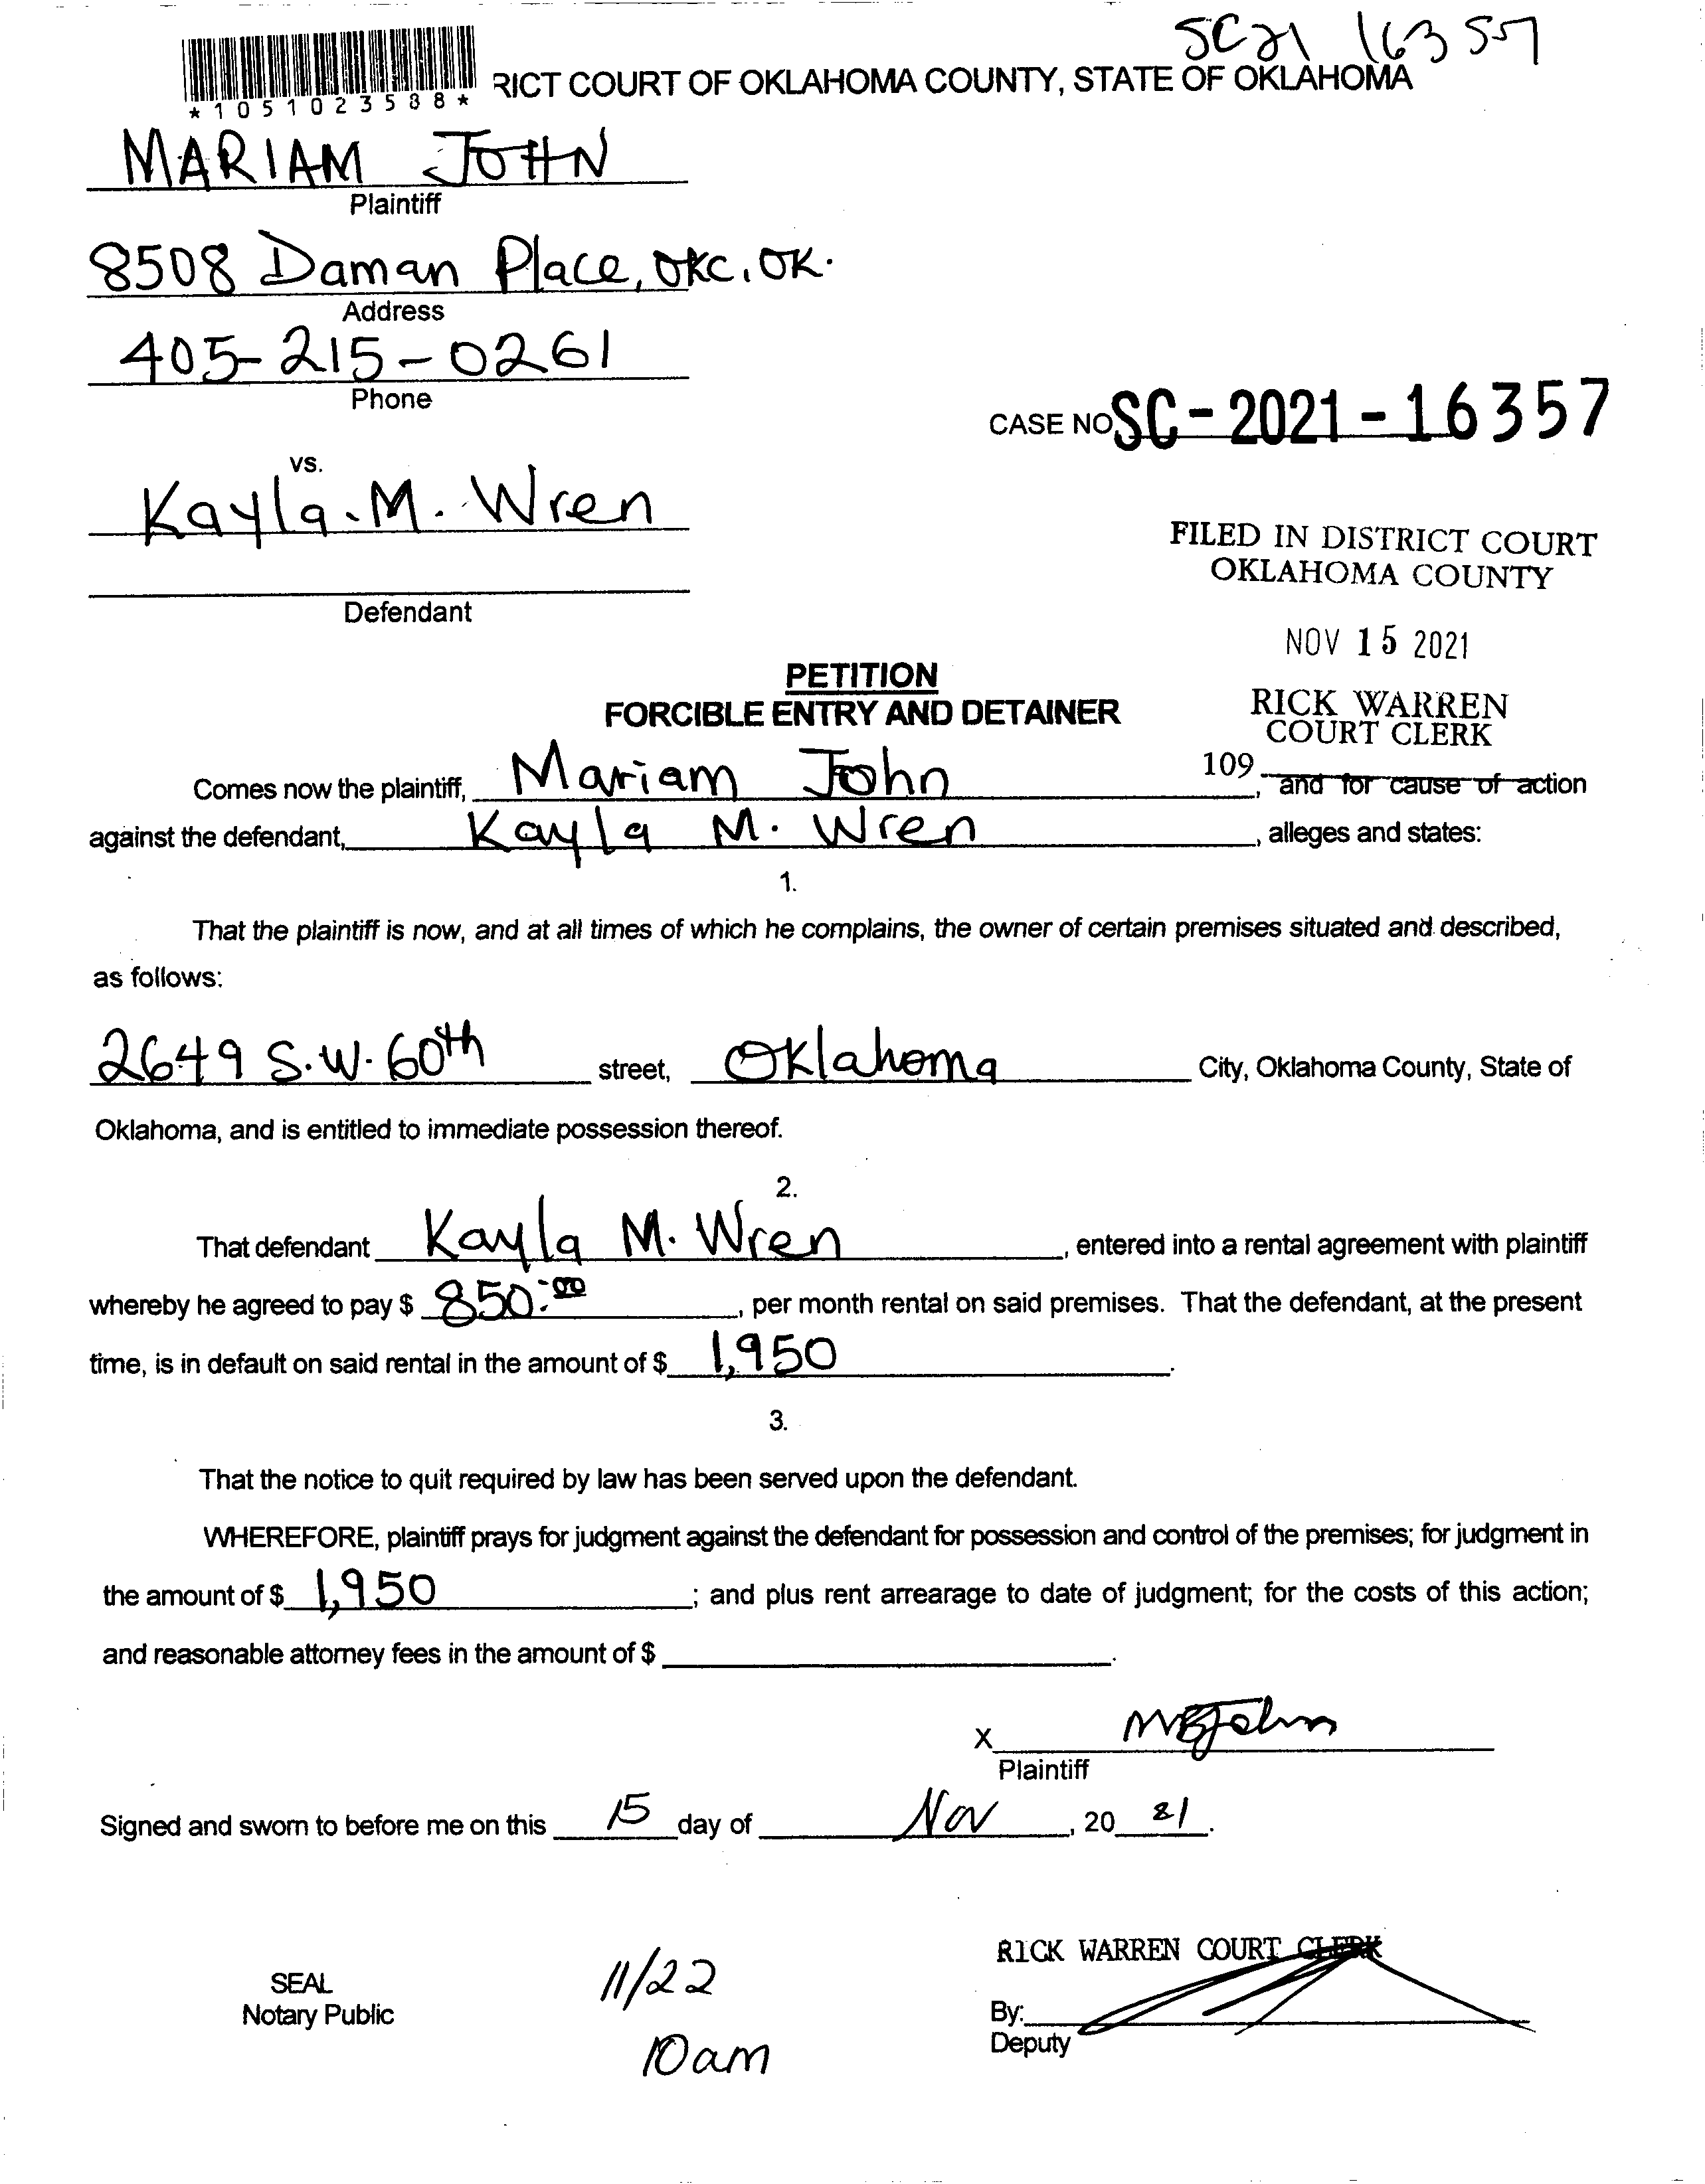 SC21 16357
*1051023588*
RICT COURT OF OKLAHOMA COUNTY, STATE OF OKLAHOMA
MARIAM JOHN
Plaintiff
8508 Daman Place, OKC, OK.
Address
405-215-0261
Phone
CASE NO SC-2021-16357
vs.
Kayla M. Wren
Defendant
FILED IN DISTRICT COURT
OKLAHOMA COUNTY
NOV 15 2021
RICK WARREN
COURT CLERK
109
PETITION
FORCIBLE ENTRY AND DETAINER
Comes now the plaintiff, Mariam John, and for cause of action
against the defendant, Kayla M. Wren, alleges and states:
1.
That the plaintiff is now, and at all times of which he complains, the owner of certain premises situated and described,
as follows:
2649 S.W. 60th street, Oklahoma City, Oklahoma County, State of
Oklahoma, and is entitled to immediate possession thereof.
2.
That defendant Kayla M. Wren, entered into a rental agreement with plaintiff
whereby he agreed to pay $ 850.00, per month rental on said premises. That the defendant, at the present
time, is in default on said rental in the amount of $ 1,950.
3.
That the notice to quit required by law has been served upon the defendant.
WHEREFORE, plaintiff prays for judgment against the defendant for possession and control of the premises; for judgment in
the amount of $ 1,950; and plus rent arrearage to date of judgment; for the costs of this action;
and reasonable attorney fees in the amount of $ .
X
Plaintiff
Signed and sworn to before me on this 15 day of Nov, 20 21.
SEAL
Notary Public
11/22
10am
RICK WARREN COURT CLERK
By:
Deputy